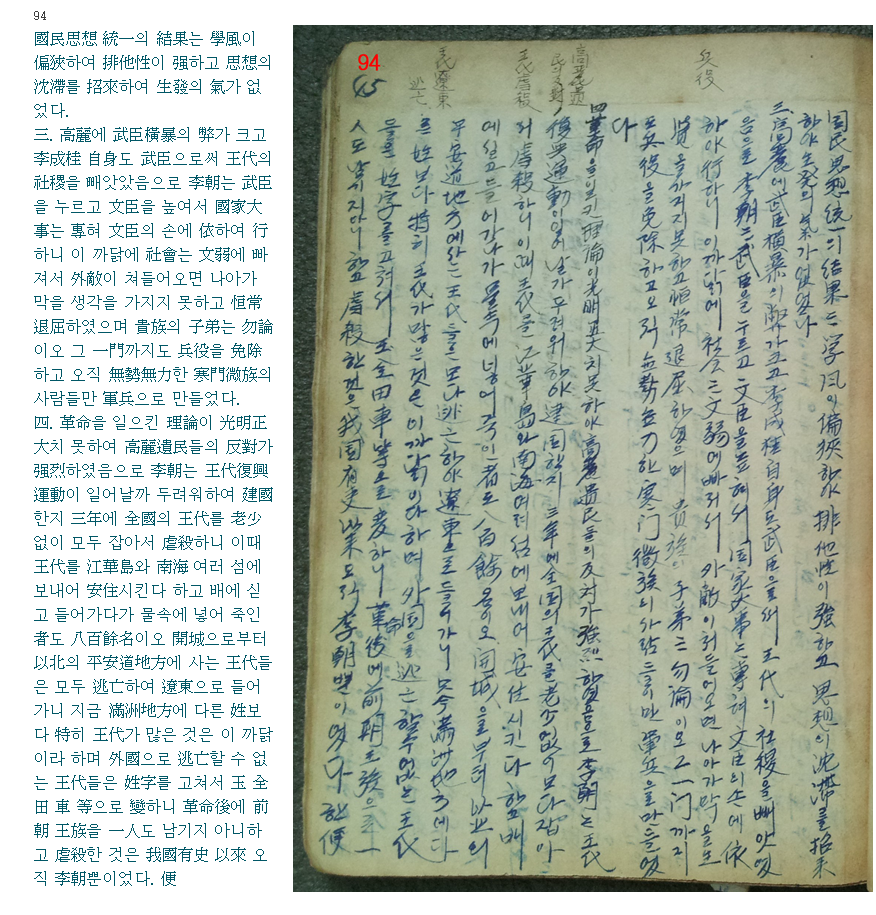 94
國民思想 統一의 結果는 學風이
偏狹하여 排他性이 强하고 思想의
沈滯를 招來하여 生發의 氣가 없
었다.
三. 高麗에 武臣橫暴의 弊가 크고
李成桂 自身도 武臣으로써 王代의
社稷을 빼앗았음으로 李朝는 武臣
을 누르고 文臣을 높여서 國家大
事는 專혀 文臣의 손에 依하여 行
하니 이 까닭에 社會는 文弱에 빠
져서 外敵이 쳐들어오면 나아가
막을 생각을 가지지 못하고 恒常
退屈하였으며 貴族의 子弟는 勿論
이오 그 一門까지도 兵役을 免除
하고 오직 無勢無力한 寒門微族의
사람들만 軍兵으로 만들었다.
四. 革命을 일으킨 理論이 光明正
大치 못하여 高麗遺民들의 反對가
强烈하였음으로 李朝는 王代復興
運動이 일어날까 두려워하여 建國
한지 三年에 全國의 王代를 老少
없이 모두 잡아서 虐殺하니 이때
王代를 江華島와 南海 여러 섬에
보내어 安住시킨다 하고 배에 싣
고 들어가다가 물속에 넣어 죽인
者도 八百餘名이오 開城으로부터
以北의 平安道地方에 사는 王代들
은 모두 逃亡하여 遼東으로 들어
가니 지금 滿洲地方에 다른 姓보
다 特히 王代가 많은 것은 이 까닭
이라 하며 外國으로 逃亡할 수 없
는 王代들은 姓字를 고쳐서 玉 全
田 車 等으로 變하니 革命後에 前
朝 王族을 一人도 남기지 아니하
고 虐殺한 것은 我國有史 以來 오
직 李朝뿐이었다. 便
94
兵役
高麗遺
民反對
王代虐殺
王代遼東
逃亡
國民思想 統一의 結果는 学风이 偏狹하야 排他性이 強하고 思想의 沈滯를 招來
하야 生発의 氣가 없었다
三.高麗에 武臣橫暴의 弊가 크고 李成桂 自身도 武臣으로써 王代의 社稷을 빼앗었
음으로 李朝는 武臣을 누르고 文臣을 높혀서 国家大事는 專혀 文臣의 손에 依
하야 行하니 이 까닭에 社会는 文弱에 빠져서 外敵이 처들어오면 나아가 막을 生
覺을 가지지 못하고 恒常 退屈하였으며 貴族의 子弟는 勿論이오 그 一门까지
도 兵役을 免除하고 오직 無勢無力한 寒门微族의 사람들만 軍兵으로 만들었
다
四.革命을 일으킨 理論이 光明正大치 못하야 高麗遺民들의 反対가 強烈하였음으로 李朝는 王代
復興運動이 일어날가 두려워하야 建国한지 三年에 全国의 王代를 老少없이 모다 잡아
서 虐殺하니 이때 王代를 江華島와 南海 여러 섬에 보내어 安住시킨다 하고 배
에 싣고 들어가다가 물속에 넣어 죽인 者도 八百餘名이오 開城으로부터 以北의
平安道地方에 사는 王代들은 모다 逃亡하야 遼東으로 들어가니 只今 滿洲地方에 다
른 姓보다 特히 王代가 많은 것은 이 까닭이라 하며 外国으로 逃亡할 수 없는 王代
들은 姓字를 고쳐서 玉全田車 等으로 変하니 革命後에 前朝王族을 一
人도 남기지 아니하고 虐殺한 것은 我国有史以来 오직 李朝뿐이었다 한便